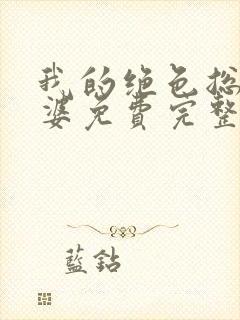 我的绝色总
婆免费完整
藍鉆